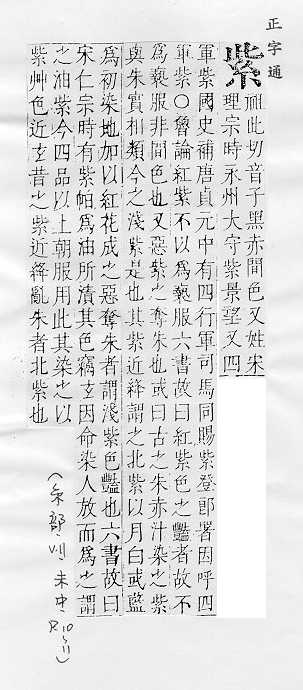 正字通
紫
祖此切音子黑赤間色又姓宋
理宗時永州大守紫景望又四
軍紫國史補唐貞元中有四行軍司馬同賜紫登郎署因呼四
軍紫〇魯論紅紫不以爲褻服六書故曰紅紫色之豔者故不
爲褻服非間色也又惡紫之奪朱也或曰古之朱赤汁染之紫
與朱實相類今之淺紫是也其紫近絳謂之北紫以月白或藍
爲初染地加以紅花成之惡奪朱者謂淺紫色豔也六書故曰
宋仁宗時有紫帕爲油所漬其色竊玄因命染人放而爲之謂
之油紫今四品以上朝服用此其染之以
紫艸色近玄昔之紫近絳亂朱者北紫也
(糸部 未中 P10~11)